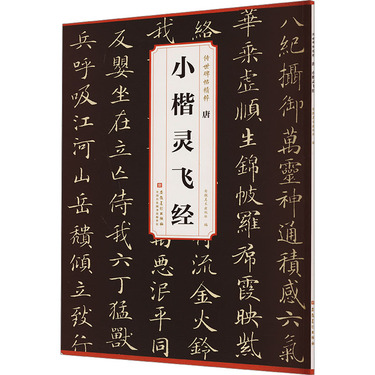 八紀攝御萬靈神通積感六氣
華乘虛順生錦帔羅帬霞映紫
絡
流金火鈴
惡泯平同
反嬰坐在立亡侍我六丁猛獸
兵呼吸江河山岳穨傾立致行
传世碑帖精粹
唐
小楷灵飞经
安徽美术出版社 编